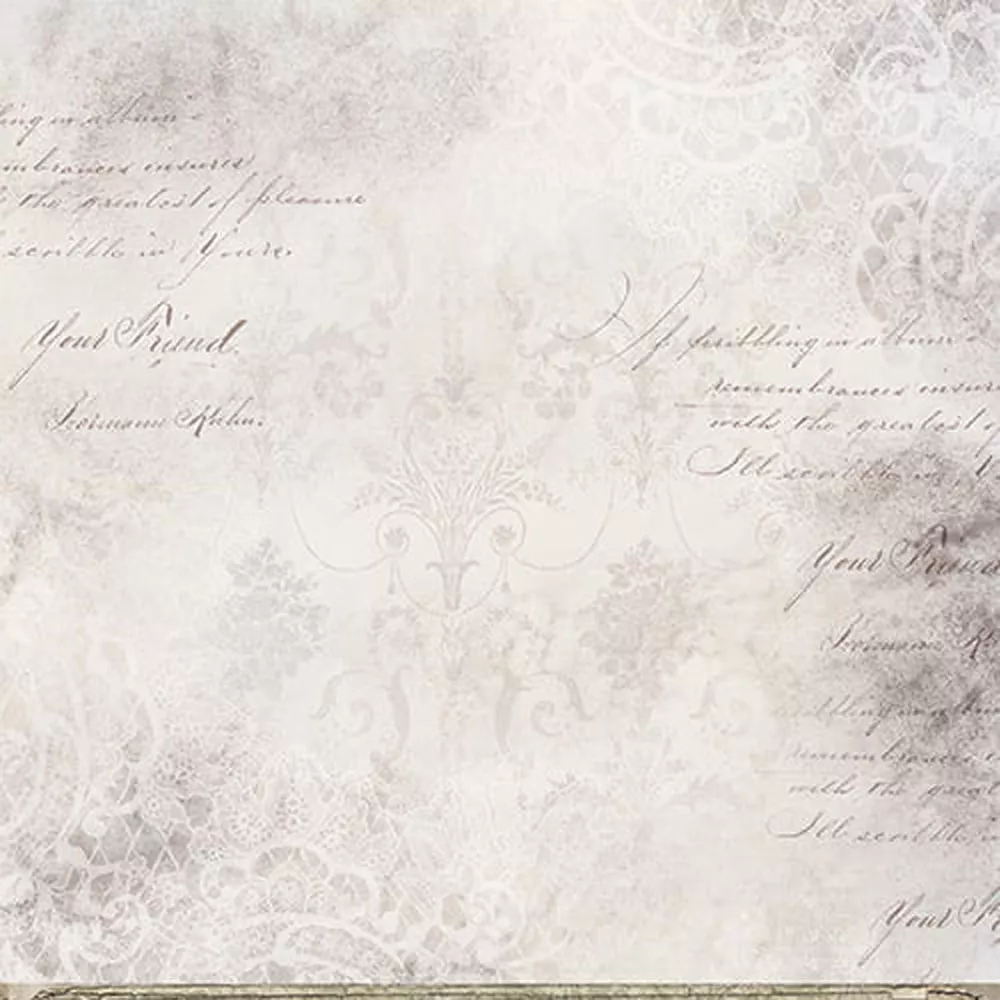 ling in album's
mbrances insures
the greatest of pleasure
scribble in Yours.
Your Friend.
If scribbling in album's
remembrances insure
with the greatest of
I'll scribble in Y
Your Friend
ibbling in album
remembrances
with the great
I'll scribble in
Your F